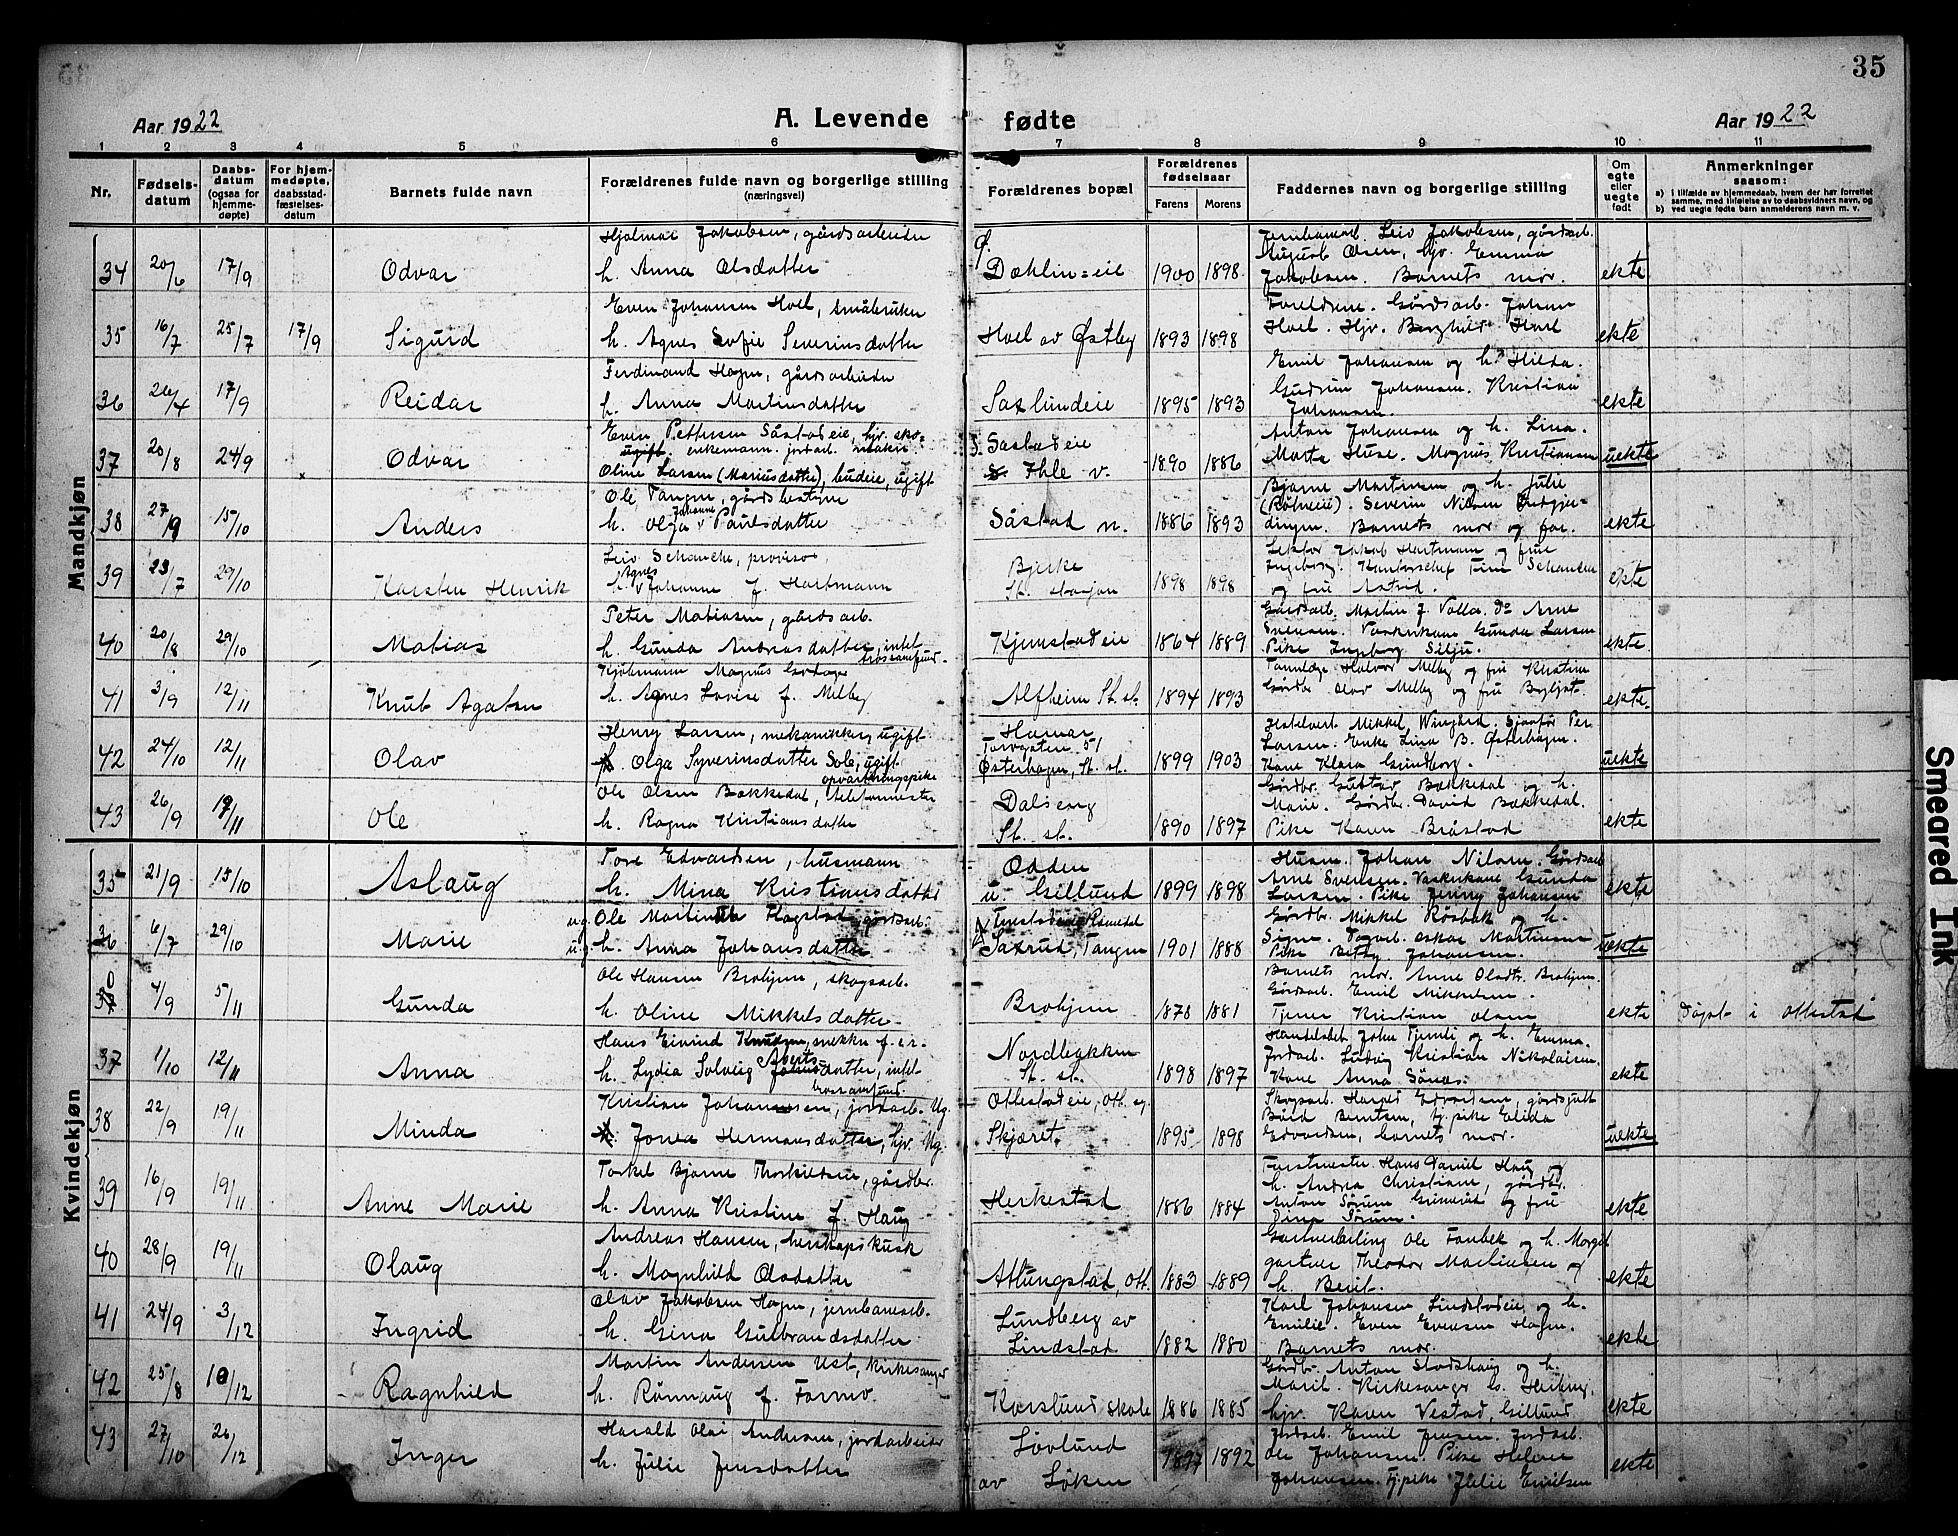 35
Aar 1922 A. Levende fødte Aar 1922
1 2 3 4 5 6 7 8 9 10 11
Nr. Fødselsdatum Daabsdatum (ogsaa for hjemmedøpte) For hjemmedøpte, daabsstadfæstelsesdatum Barnets fulde navn Forældrenes fulde navn og borgerlige stilling (næringsvei) Forældrenes bopæl Forældrenes fødselsaar Farens Morens Faddernes navn og borgerlige stilling Om egte eller uegte født Anmerkninger saasom:
a) i tilfælde av hjemmedaab, hvem der har forrettet samme, med tilføielse av to daabsvidners navn, og
b) ved uegte fødte barn anmelderens navn m. v.
Mandkjøn
Hjalmar Jakobsen, gårdsarbeider
34 20/6 17/9 Odvar h. Anna Olsdatter Dæhlin=eie 1900 1898 Jakobsen. Barnets mor. ekte
Even Johansen Hoel, småbruker
35 16/7 25/7 17/9 Sigurd h. Agnes Sofie Severinsdatter Hoel av Østby 1893 1898 Hoel. Hjv. Borghild Hoel ekte
Ferdinand Hagen, gårdsarbeider Emil Johansen og h. Hilda.
36 17/9 Reidar h. Anna Martinsdatter Saxlundeie 1895 1893 Gudrun Johansen. Kristian Johansen. ekte
Even Pettersen Såstadeie, Såstadeie Anton Johansen og h. Lina.
37 20/8 24/9 Odvar Oline Larsen (Mariusdatter), budeie, ugift Ihle v. 1890 1886 Marta Huse. Magnus Kristiansen uekte
Ole Tangen, gårdsbestyrer Bjarne Martinsen og h. Julie
38 27/9 15/10 Anders h. Olga Johanne Paulsdatter Såstad n. 1886 1893 Barnets mor og far. ekte
Leiv Schanche, provisor Bjerke Lektor Jakob Hartmann og frue
39 23/7 29/10 Karsten Henrik h. Agnes Johanne f. Hartmann St. stasjon 1898 1898 og fru Astrid. ekte
Peter Matiasen, gårdsarb. Gårdsarb. Martin J. Valla. do Arne
40 20/8 29/10 Matias h. Gunda Andreasdatter, intet trossamfund. Kjemstadeie 1864 1889 Svensen. Vaskerkone Gunda Larsen Pike Ingeborg Silju. ekte
Kjøbmann Magnus Tannlæge Halvor Melby og fru Kristine
41 3/9 12/11 Knut Agaton h. Agnes Lovise f. Melby Alfheim St. st. 1894 1893 Gårdbr. Olav Melby og fru Bergljot. ekte.
Henry Larsen, mekaniker, ugift Hamar Torvgaten 51 Hotelvert Mikkel Wingård. Sjaafør Per
42 24/10 12/11 Olav Olga Syverinsdatter Sole, ugift opvartningspike Østerhagen, St. st. 1899 1903 Larsen. Enke Lina B. Østerhagen. Kone Klara Grindborg. uekte
Ole Olsen Bækkedal, telefonmester Dalseng Gårdbr. Gustav Bækkedal og h.
43 26/9 19/11 Ole h. Ragna Kristiansdatter St. st. 1890 1897 Marie. Gårdbr. David Bækkedal. Pike Karen Bråstad ekte
Kvindekjøn
Tore Edvardsen, husmann Odden Husm. Johan Nilsen. Gårdsarb
35 21/9 15/10 Aslaug h. Mina Kristiansdatter u. Gillund 1899 1898 Arne Svensen. Vaskerkone Gunda Larsen. Pike Jenny Johansen ekte
ug. Ole Martin Flagstad gårdsarb. Gårdbr. Mikkel Røsbak og h.
36 6/7 29/10 Marie ug. h. Anna Johansdatter Saxrud, Tangen 1901 1888 Signe. Oskar Martinsen Pike Betsy Johansen. uekte
Ole Hansen Brohjem, skogsarb. Barnets mor. Anne Olsdtr. Brohjem.
4/9 5/11 Gunda h. Oline Mikkelsdatter Brohjem 1878 1881 Gårdsarb. Emil Mikkelsen. Tjener Kristian Olsen ekte Døpt i Ottestad
Hans Eivind Knudsen, Nordbakken Handelsbet. Johan Tjernli og h. Emma.
37 1/10 12/11 Anna h. Lydia Solveig datter, intet trossamfund St. st. 1898 1897 Jordarb. Ludvig Kristian Nikolaisen. Kone Anna Sønæs. ekte
Kristian Johannesen, jordarb. Ug. Ottestadeie, Ott. sg. Skogsarb. Harald Edvardsen, gårdsgutt
38 22/9 19/11 Minda Jonea Hermansdatter, hjv. Ug. Skjæret. 1895 1898 Bård Berntsen, tj. pike Elida Edvardsen, barnets mor. uekte
Torkel Bjarne Thorkildsen, gårdbr. Forstmester Hans Daniel Haug og
39 16/9 19/11 Anne Marie h. Anna Kristine f. Haug Herkestad 1886 1884 h. Andrea Christiane, gårdbr. Anton Sørum Grimerud og fru Dina Sørum. ekte
Andreas Hansen, herskapskusk Ole Fonbek og h.
40 28/9 19/11 Olaug h. Magnhild Olsdatter Attungstad, Ott. 1883 1889 gartner Theodor Martinsen og h. Berit. ekte
Olav Jakobsen Hagen, jernbanearb. Lundberg av Karl Johansen Lindstadeie og h.
41 24/9 3/12 Ingrid h. Gina Gulbrandsdatter Lindstad 1882 1880 Emilie. Even Evensen Hagen. Barnets mor. ekte
Martin Andersen Ust, kirkesanger Gårdbr. Anton Stadshaug og h.
42 25/8 10/12 Ragnhild h. Rønnaug f. Formo. Karslund skole 1886 1885 Marit. Kirkesanger hjv. Karen Vestad, Gillund ekte
Harald Olai Andersen, jordarbeider Løvlund Jordarb. Emil Jensen. Jordarb.
43 27/10 26/12 Inger h. Julie Jensdatter av Løken 1897 1892 Ole Johansen. Pike Helene Johansen. Tj. pike Julie Emilsen ekte
Smeared Ink